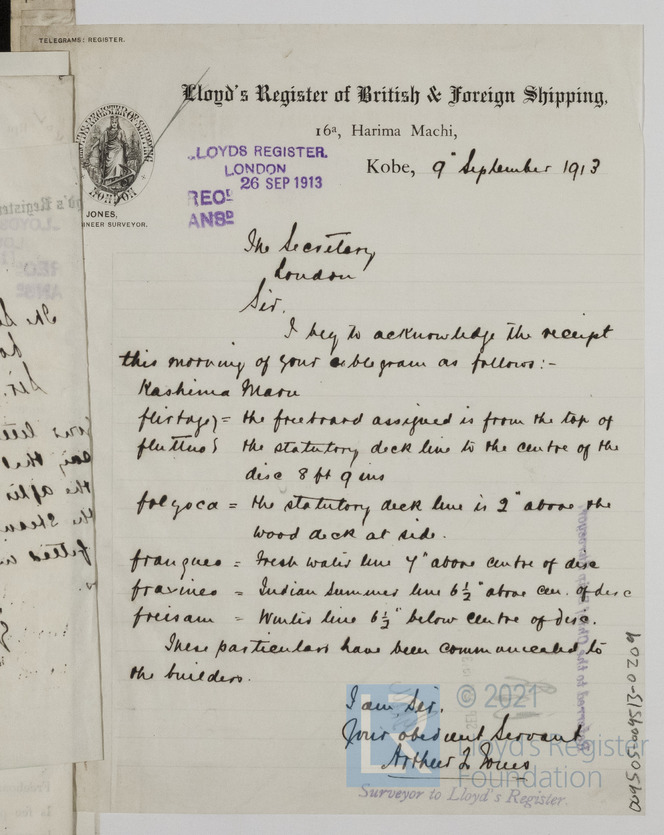 TELEGRAMS: REGISTER.
Lloyd's Register of British & Foreign Shipping,
16a, Harima Machi,
Kobe, 9" September 1913
LLOYD'S REGISTER OF SHIPPING
LONDON
JONES,
INEER SURVEYOR.
LOYDS REGISTER.
LONDON
26 SEP 1913
REOD
ANSD
The Secretary
London
Sir.
I beg to acknowledge the receipt
this morning of your cablegram as follows:-
Kashima Maru
flirtage } = the freeboard assigned is from the top of
fluttus } the statutory deck line to the centre of the
disc 8 ft 9 ins
folyoca = the statutory deck line is 2" above the
wood deck at side.
frangueo = Fresh water line 7" above centre of disc
fraxineo = Indian Summer line 6½" above cen. of disc
freisam = Winter line 6½" below centre of disc.
These particulars have been communicated to
the builders.
I am, Sir.
Your obedient Servant
Arthur L Jones
Surveyor to Lloyd's Register.
© 2021
Lloyd's Register
Foundation